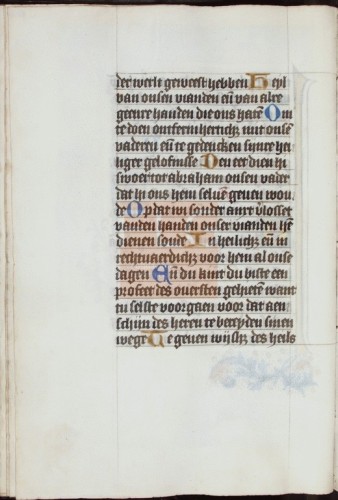 der werlt geweest hebben Heyl
van onsen vianden en̄ van alre
geenre handen die ons hatē Om
te doen ontfermherticħ mit onsē
vaderen en̄ te gedencken sijnre hei
liger gelofnisse Den eet dien hi
swoer tot abraham onsen vader
dat hi ons hem seluē geuen wou
de Op dat wi sonder anxt v̓losset
vanden handen onser vianden hē
dienen soude In heilicħ en̄ in
rechtuaerdicħ voor hem al onse
dagen En̄ du kint du biste een
profeet des ouersten gehietē want
tu selste voorgaen voor dat aen
schijn des heren te bereyden sinen
wege Te geuen wijsħ des heils